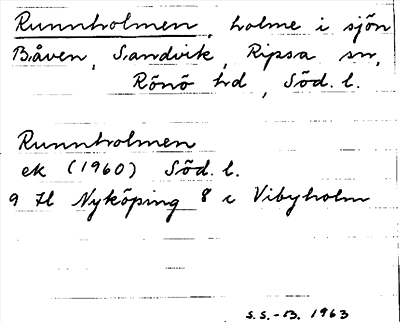 Runnholmen, holme i sjön
Båven, Sandvik, Ripsa sn,
Rönö hd, Söd. l.
Runnholmen
ek (1960) Söd. l.
9 H Nyköping 8 i Vibyholm
S.S.-B. 1963